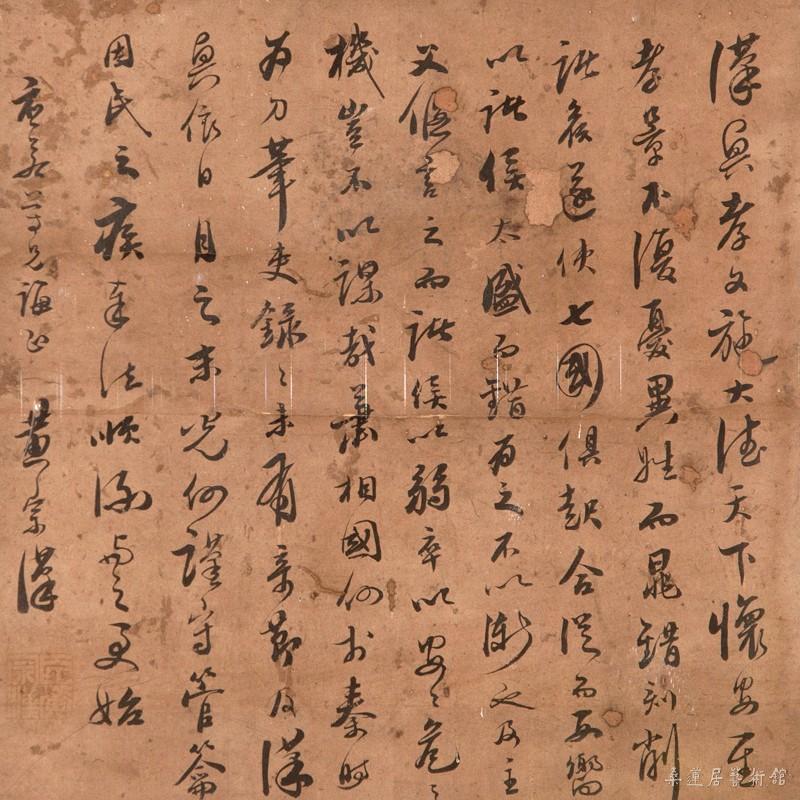 漢興孝文施大德天下懷安至
孝景不復憂異姓而晁錯刻削
諸侯遂使七國俱起合從而西嚮
以諸侯太盛而錯為之不以漸也及主
父偃言之而諸侯以弱卒以安〻危之
機豈不以謀哉蕭相國何於秦時
為刀筆吏錄〻未有奇節及漢
興依日月之末光何謹守管籥
因民之疾秦法順流與之更始
尊兄誨正 黃宗漢
桑蓮居藝術館